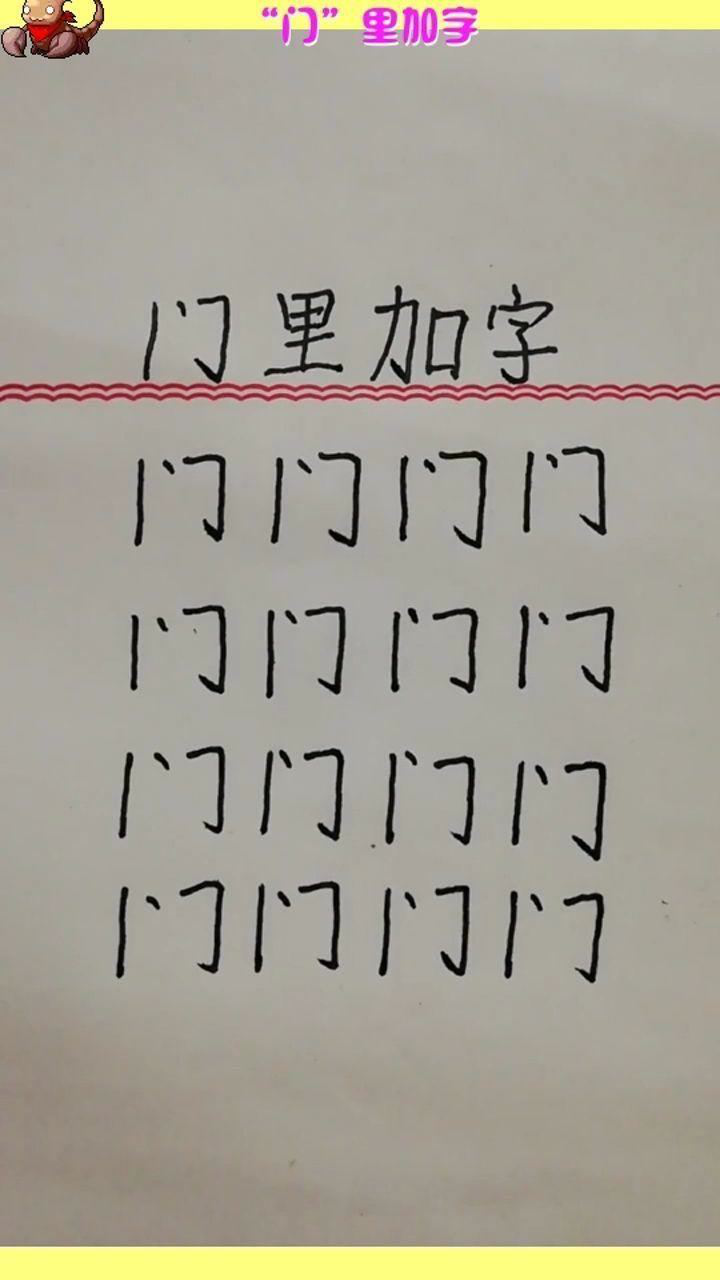 “门”里加字
门里加字
门门门门
门门门门
门门门门
门门门门